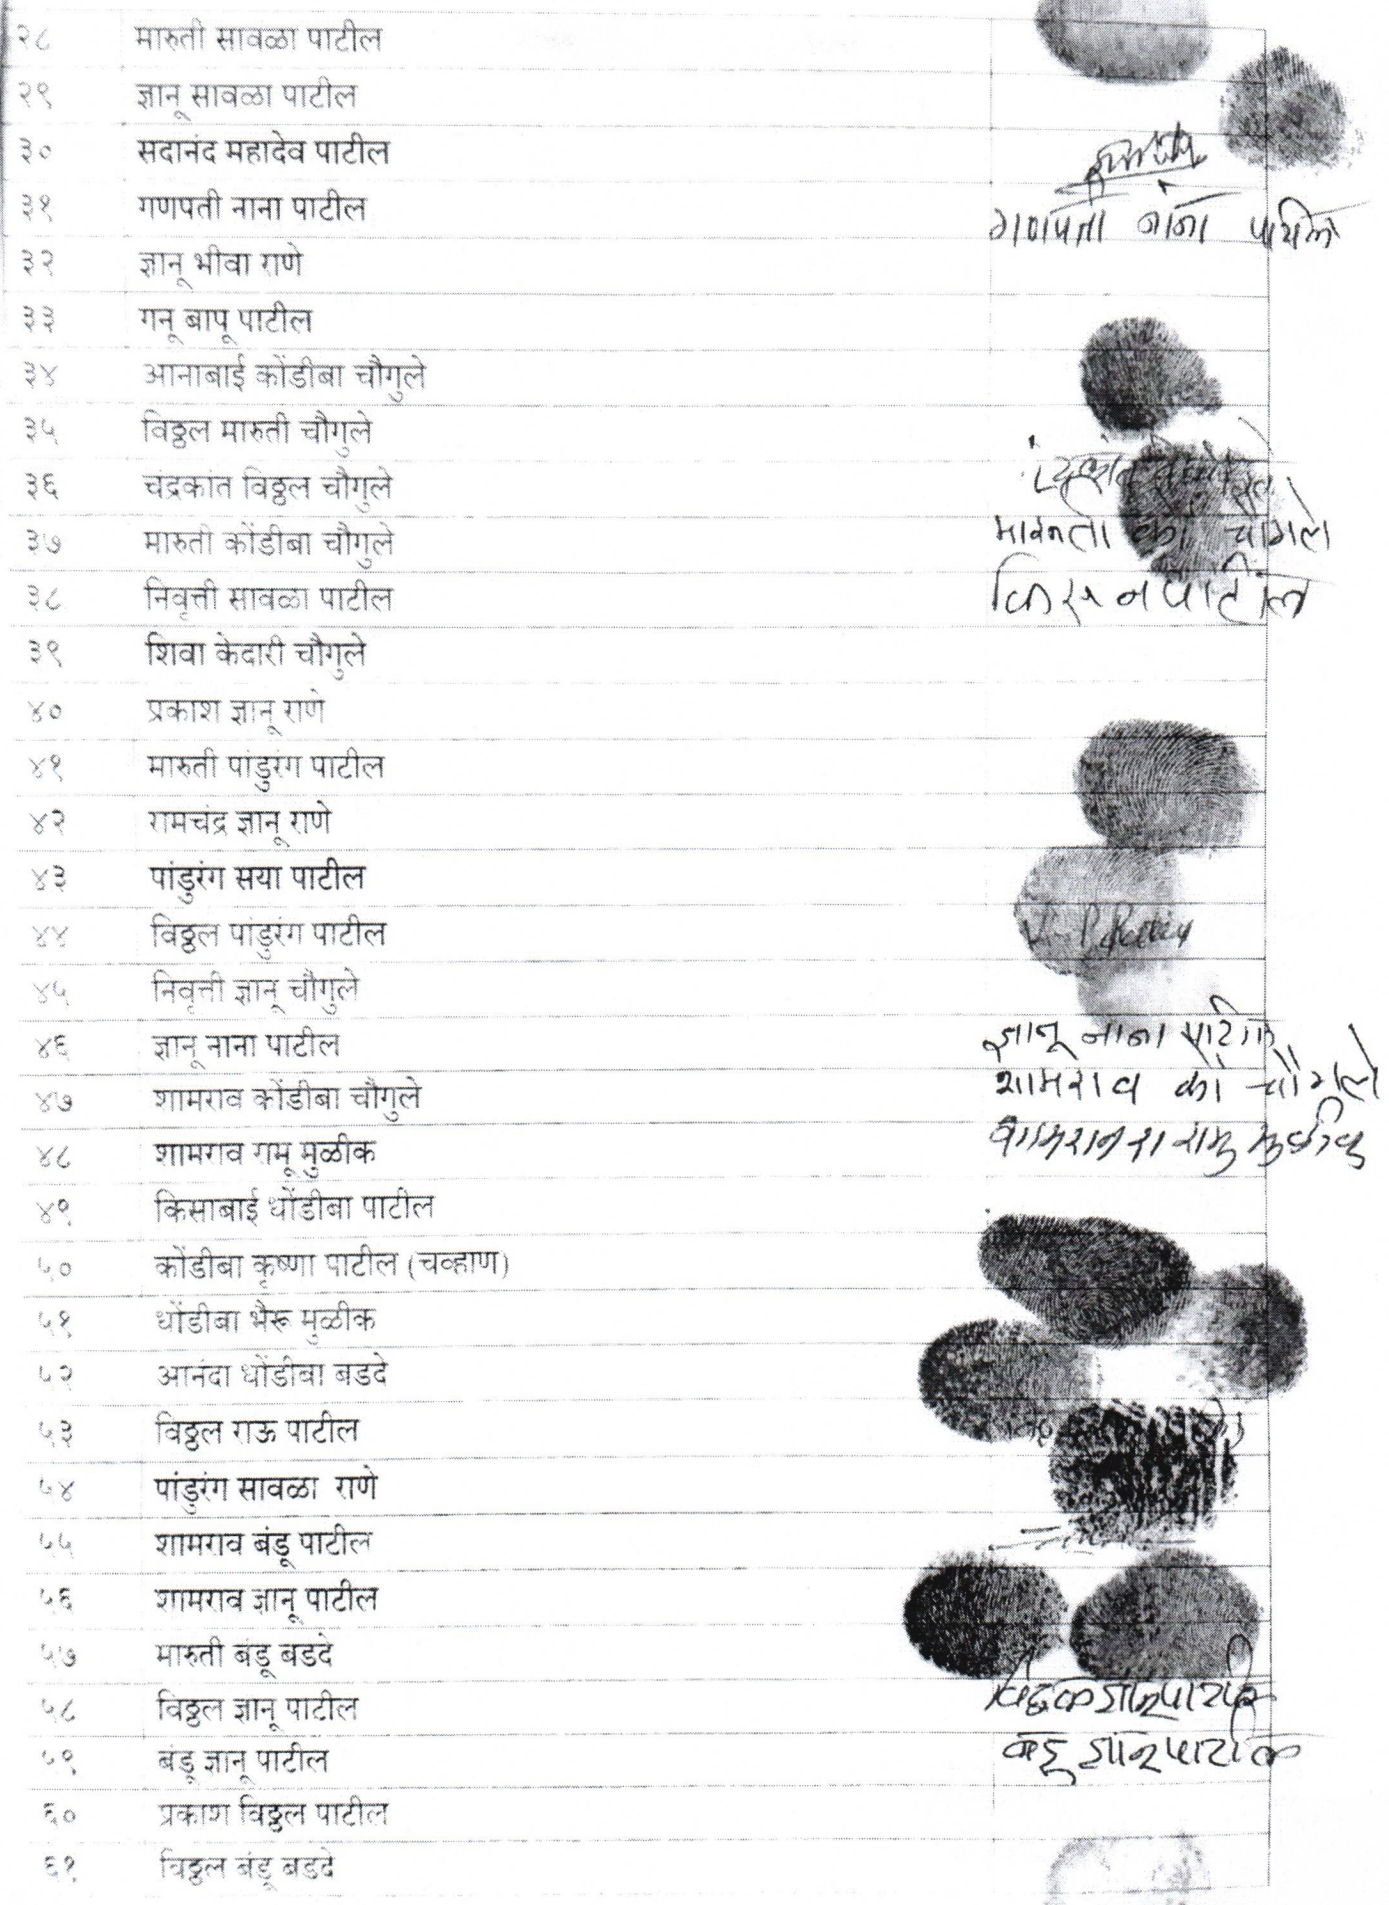 २८ मारुती सावळा पाटील
२९ ज्ञानू सावळा पाटील
३० सदानंद महादेव पाटील
३१ गणपती नाना पाटील गणपती नाना पाटील
३२ ज्ञानू भीवा राणे
३३ गनू बापू पाटील
३४ आनाबाई कोंडीबा चौगुले
३५ विठ्ठल मारुती चौगुले
३६ चंद्रकांत विठ्ठल चौगुले
३७ मारुती कोंडीबा चौगुले मारुती को चौगले
३८ निवृत्ती सावळा पाटील किसन पाटील
३९ शिवा केदारी चौगुले
४० प्रकाश ज्ञानू राणे
४१ मारुती पांडुरंग पाटील
४२ रामचंद्र ज्ञानू राणे
४३ पांडुरंग सया पाटील
४४ विठ्ठल पांडुरंग पाटील
४५ निवृत्ती ज्ञानू चौगुले
४६ ज्ञानू नाना पाटील ज्ञानू नाना पाटील
४७ शामराव कोंडीबा चौगुले शामराव को चौगले
४८ शामराव रामू मुळीक
४९ किसाबाई धोंडीबा पाटील
५० कोंडीबा कृष्णा पाटील (चव्हाण)
५१ धोंडीबा भैरू मुळीक
५२ आनंदा धोंडीबा बडदे
५३ विठ्ठल राऊ पाटील
५४ पांडुरंग सावळा राणे
५५ शामराव बंडू पाटील
५६ शामराव ज्ञानू पाटील
५७ मारुती बंडू बडदे
५८ विठ्ठल ज्ञानू पाटील विठ्ठल ज्ञानू पाटील
५९ बंडू ज्ञानू पाटील बंडू ज्ञानू पाटील
६० प्रकाश विठ्ठल पाटील
६१ विठ्ठल बंडू बडदे